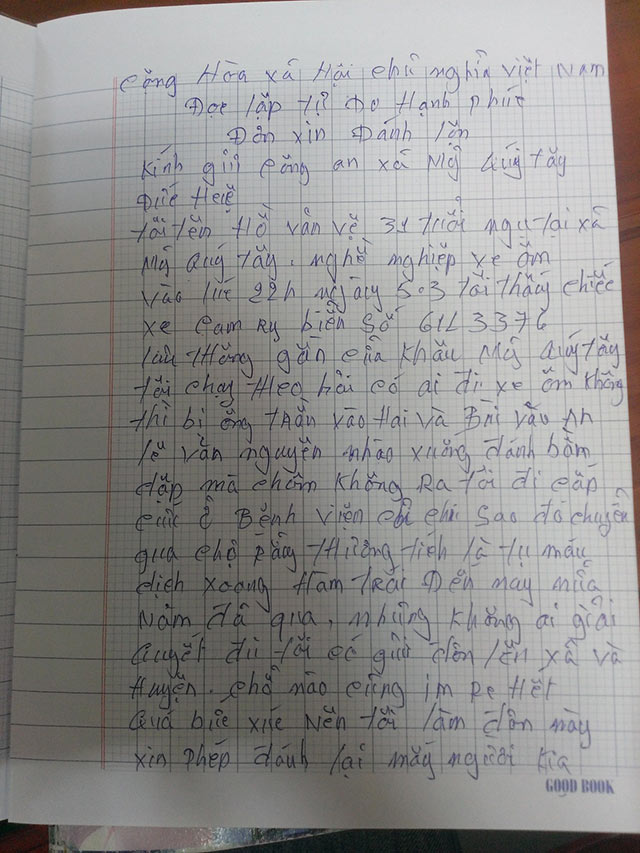 Cộng Hòa xã Hội chủ nghĩa việt Nam
Đọc lặp tự Do Hạnh phúc
Đơn xin Đánh lộn
Kính gửi công an xã Mỹ Quý tây
Đức Huệ
tôi tên Hồ văn vẽ 31 tuổi ngụ tại xã
Mỹ Quý tây. nghề nghiệp xe ôm
vào lúc 22h ngày 5.3 tôi thấy chiếc
xe Camry biển số 61L 3376
tại gần cửa khẩu Mỹ Quý tây
tôi chạy theo hỏi có ai đi xe ôm không
thì bị ông trấn vào tai và Bùi văn An
lê văn nguyên nhào xuống đánh bầm
dập mà chôm không Ra tôi đi cấp
cứu ở Bệnh viện củ chi sao đó chuyển
qua chợ Rẫy thương tích là tụ máu
dịch xoang Hàm trái Đến nay nửa
Năm đã qua, nhưng không ai giải
Quyết dù tôi có gửi đơn lên xã và
Huyện. chổ nào cũng im Re Hết
Quá bức xúc Nên tôi làm đơn này
xin phép đánh lại mấy người kia
GOOD BOOK